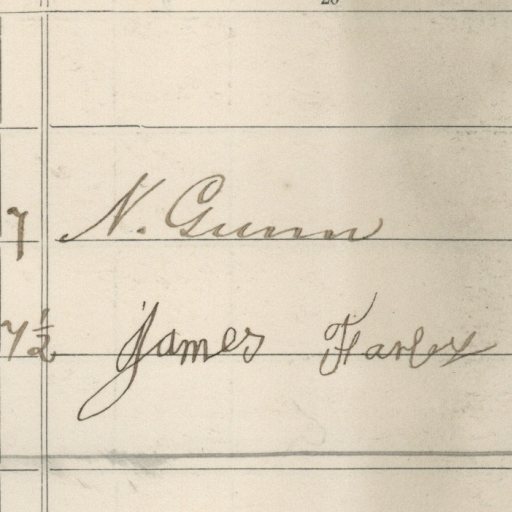 7 N. Gunn
7½ James Farley